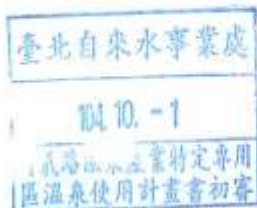 臺北自來水事業處
104.10.-1
溫泉產業特定專用
區溫泉使用計畫書初審